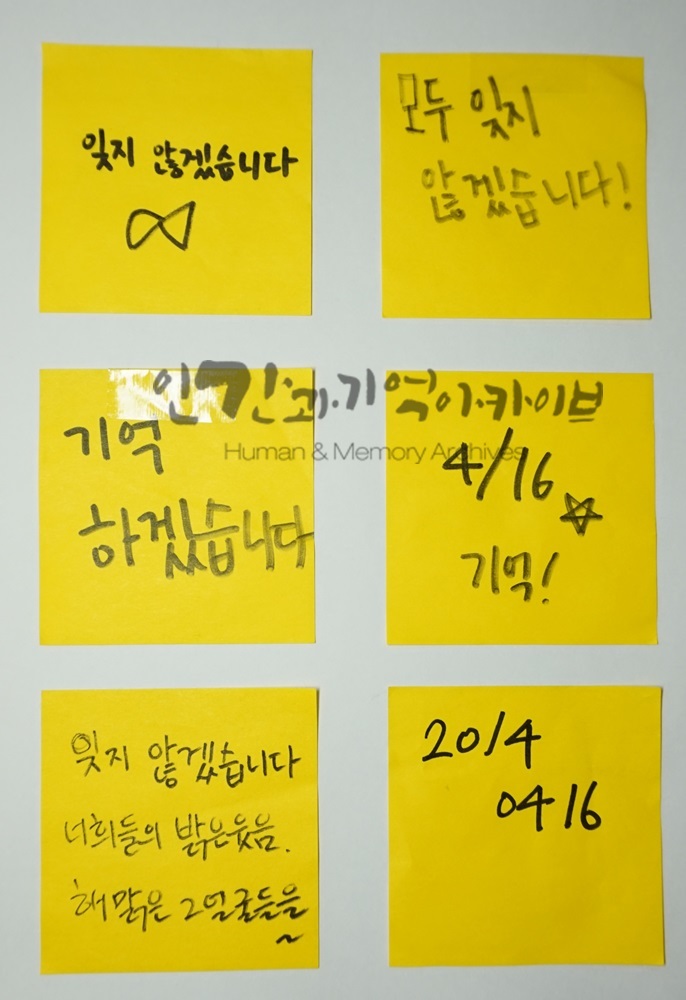 잊지 않겠습니다
모두 잊지
않겠습니다!
인간과.기억아카이브
Human & Memory Archives
기억
하겠습니다
4/16
기억!
잊지 않겠습니다
너희들의 밝은웃음.
해맑은 그얼굴들을
~
2014
0416